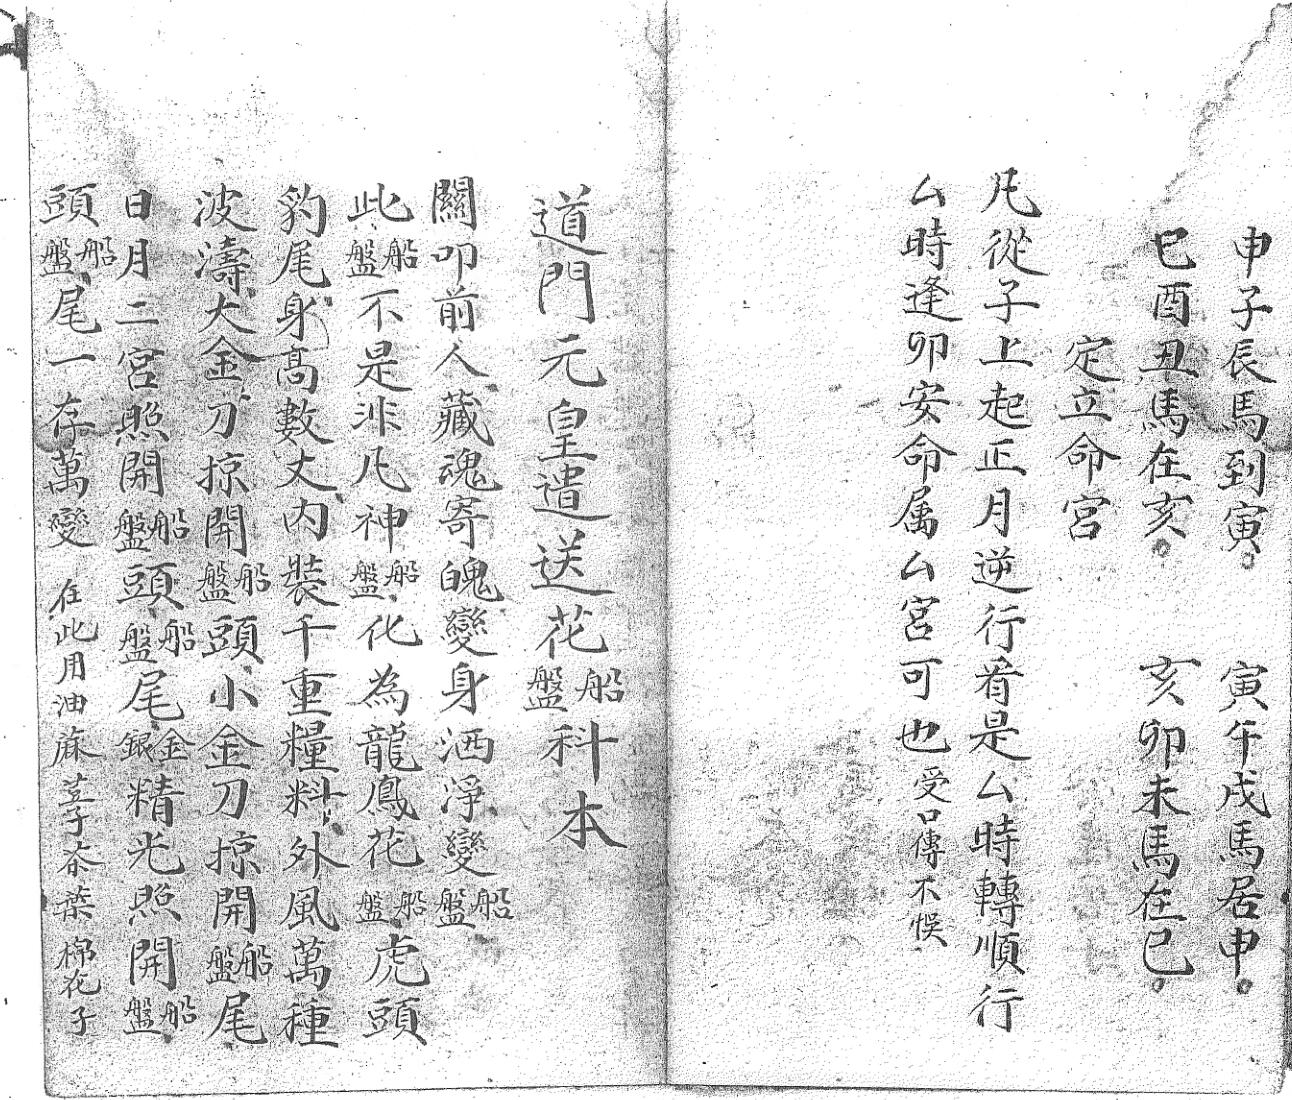 申子辰馬到寅。　寅午戌馬居申。
巳酉丑馬在亥。　亥卯未馬在巳。
定立命宮
凡從子上起正月逆行看是厶時轉順行
厶時逢卯安命属厶宮可也 受口傳不悞
道門元皇遣送花船盤科本
關叩前人藏魂寄魄變身洒淨變船盤
此船盤不是非凡神船盤化為龍鳳花船盤虎頭
豹尾身高數丈内裝千重糧料外風萬種
波濤大金刀掠開船盤頭小金刀掠開船盤尾
日月二宮照開船盤頭船盤尾金銀精光照開船盤
頭船盤尾一存萬變 在此用油蔴荳子茶葉棉花子